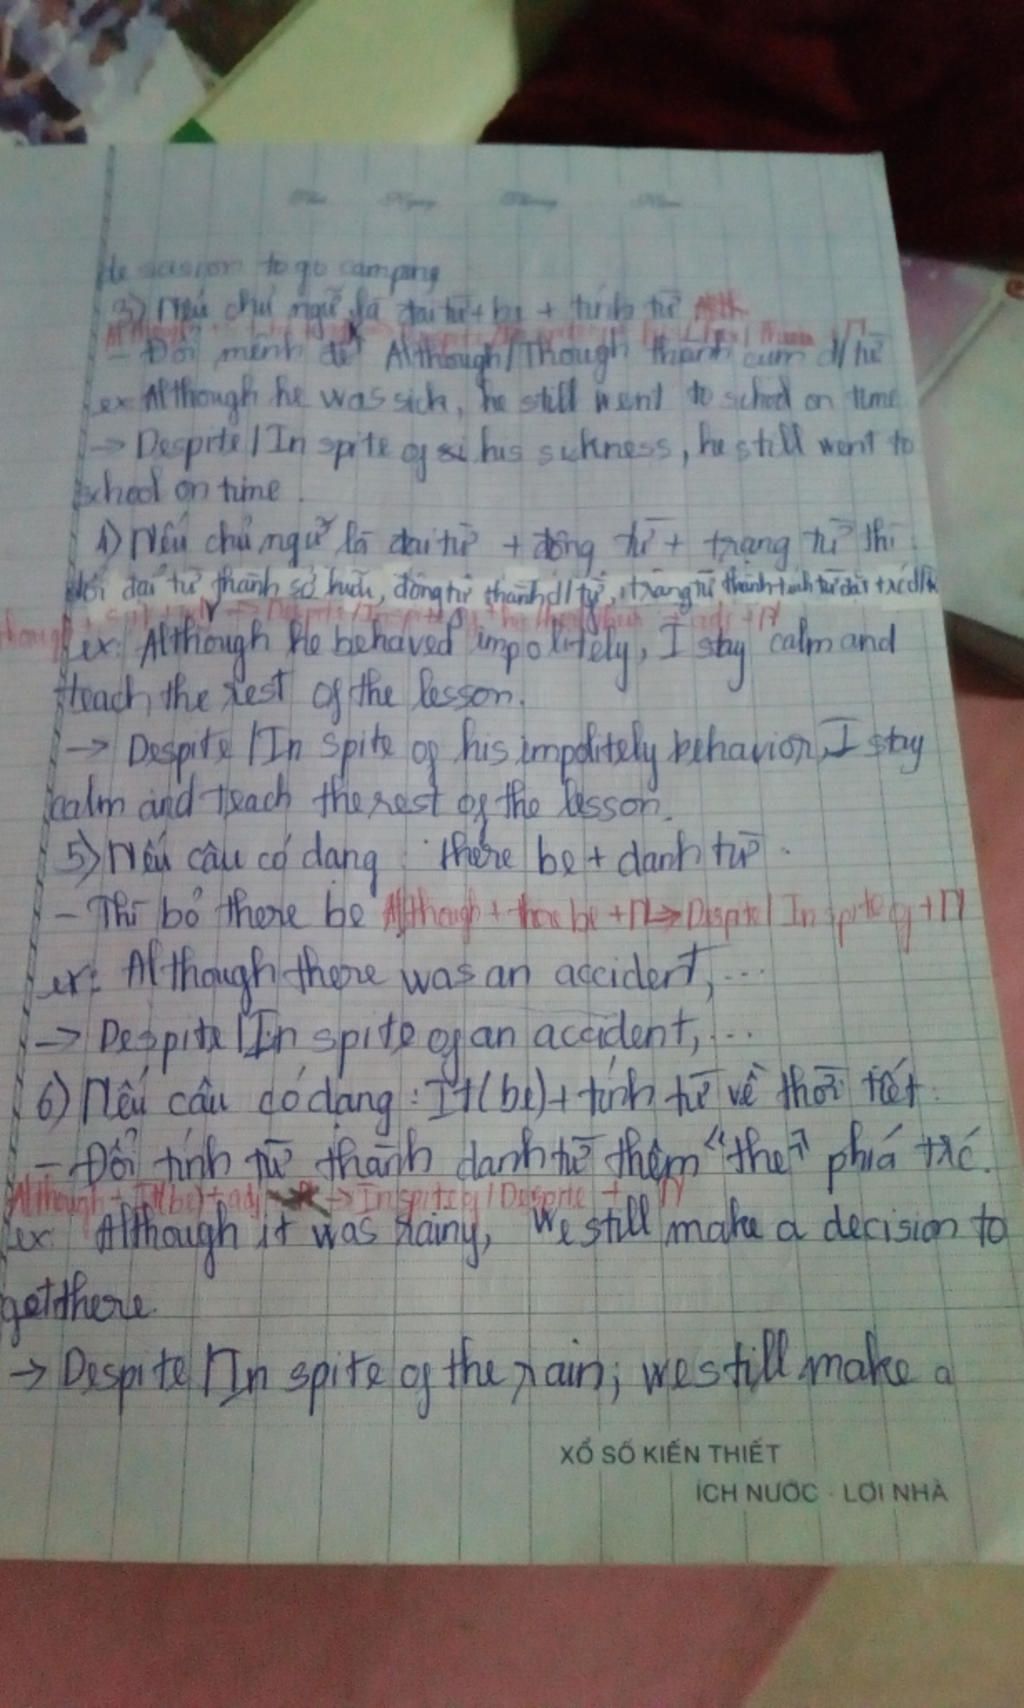 to go camping
3) Nếu chủ ngữ là đại từ + be + tính từ
- Đổi mệnh đề Although/Though thành cụm d/từ
ex: Although he was sick, he still went to school on time
-> Despite/In spite of his sickness, he still went to
school on time.
4) Nếu chủ ngữ là đại từ + động từ + trạng từ thì
đổi đại từ thành sở hữu, động từ thành d/từ, trạng từ thành tính từ đặt trc d/từ
ex: Although he behaved impolitely, I stay calm and
teach the rest of the lesson.
-> Despite/In spite of his impolitely behavior, I stay
calm and teach the rest of the lesson.
5) Nếu câu có dạng: there be + danh từ.
- Thì bỏ there be Although + there be + N => Despite/In spite of + N
ex: Although there was an accident, ...
-> Despite/In spite of an accident, ...
6) Nếu câu có dạng: It (be) + tính từ về thời tiết.
- Đổi tính từ thành danh từ thêm "the" phía trc.
Although + It (be) + adj -> In spite of/Despite + N
ex: Although it was rainy, We still make a decision to
get there.
-> Despite/In spite of the rain, we still make a
XỔ SỐ KIẾN THIẾT
ÍCH NƯỚC - LỢI NHÀ